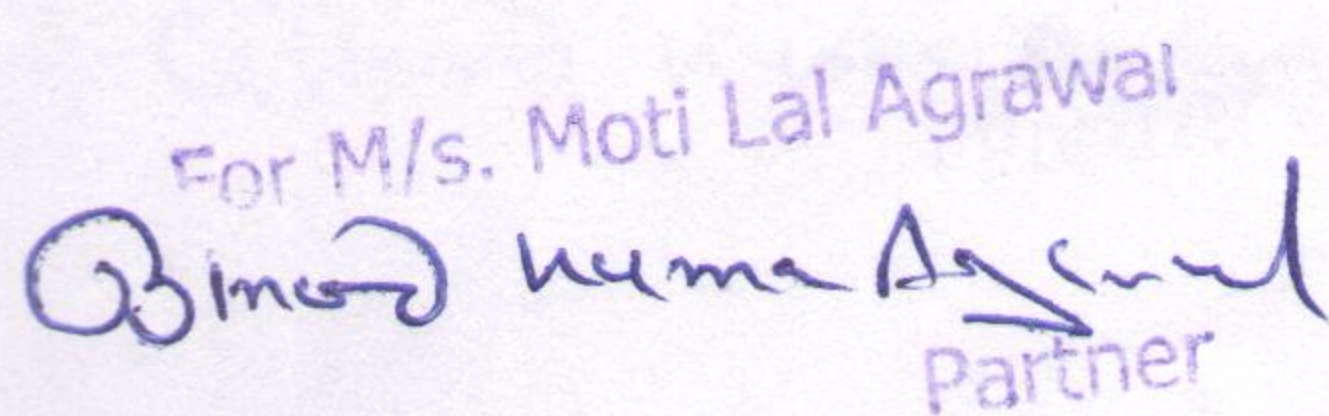 For M/s. Moti Lal Agrawal
Binod Kumar Agrawal
Partner